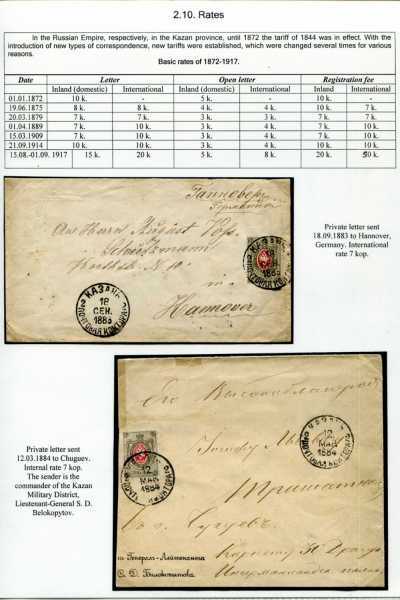 2.10. Rates
In the Russian Empire, respectively, in the Kazan province, until 1872 the tariff of 1844 was in effect. With the
introduction of new types of correspondence, new tariffs were established, which were changed several times for various
reasons.
Basic rates of 1872-1917.
Date Letter Open letter Registration fee
Inland (domestic) International Inland (domestic) International Inland International
01.01.1872 10 k. - 5 k. - 10 k. -
19.06.1875 8 k. 8 k. 4 k. 4 k. 10 k. 7 k.
20.03.1879 7 k. 7 k. 3 k. 3 k. 7 k. 7 k.
01.04.1889 7 k. 10 k. 3 k. 4 k. 7 k. 10 k.
15.03.1909 7 k. 10 k. 3 k. 4 k. 7 k. 10 k.
21.09.1914 10 k. 10 k. 3 k. 4 k. 10 k. 10 k.
15.08.-01.09. 1917 15 k. 20 k 5 k. 8 k. 20 k. 20 k.
Ганноверъ
Германія
An Herrn August Voss
in
Hannover
КАЗАНЬ
18
СЕН.
1883
ПОЧТОВАЯ КОНТОРА
Private letter sent
18.09.1883 to Hannover,
Germany. International
rate 7 kop.
Private letter sent
12.03.1884 to Chuguev.
Internal rate 7 kop.
The sender is the
commander of the Kazan
Military District,
Lieutenant-General S. D.
Belokopytov.
Его Высокоблагородію
КАЗАНЬ
12
МАР
1884
ПОЧТОВАЯ КОНТОРА
12
МАР
1884
Въ г. Чугуевъ
Генералъ-Лейтенанта
С. Д. Бѣлокопытова.